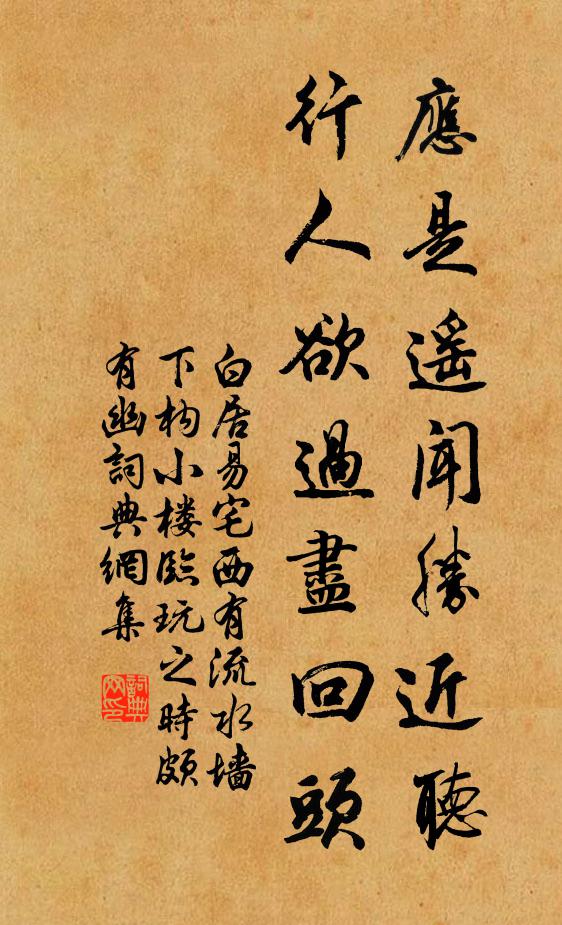 應是遥聞勝近聽
行人欲過盡回頭
白居易宅西有流水墙
下构小楼臨玩之時頗
有幽詞典網集
詞典
网印